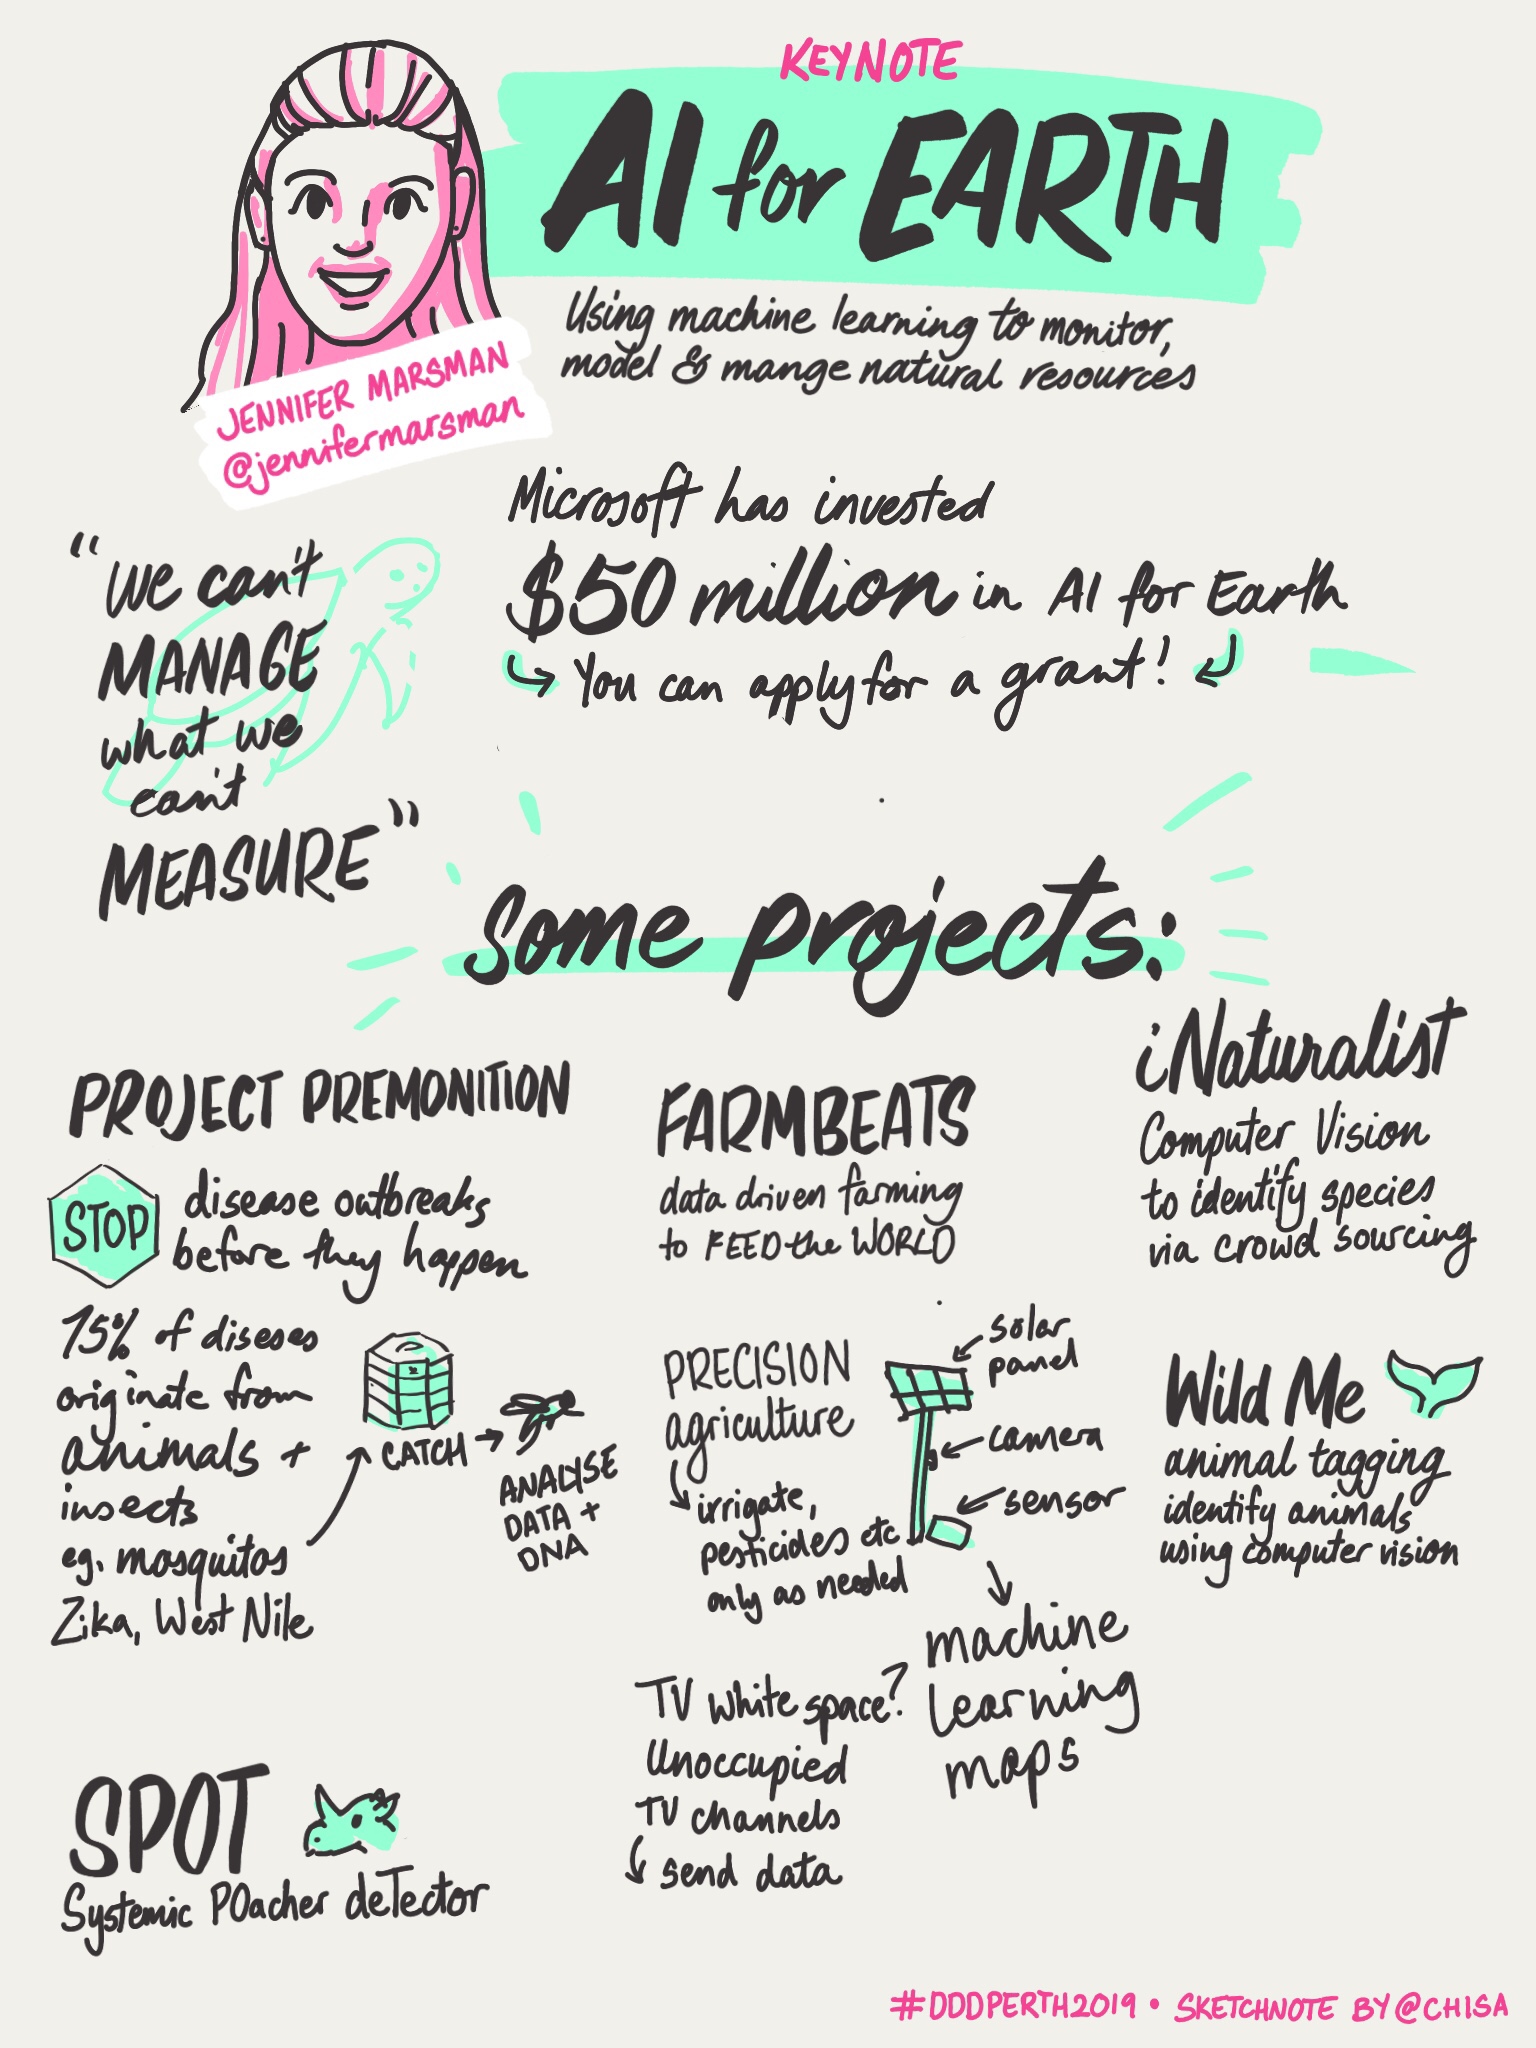 KEYNOTE
AI for EARTH
Using machine learning to monitor,
model & mange natural resources
JENNIFER MARSMAN
@jennifermarsman
Microsoft has invested
$50 million in AI for Earth
You can apply for a grant!
"We can't
MANAGE
what we
can't
MEASURE"
Some projects:
PROJECT PREMONITION
STOP disease outbreaks
before they happen
75% of diseses
originate from
animals +
insects
eg. mosquitos
Zika, West Nile
CATCH
ANALYSE
DATA +
DNA
SPOT
Systemic POacher deTector
FARMBEATS
data driven farming
to FEED the WORLD
PRECISION
agriculture
irrigate,
pesticides etc
only as needed
solar
panel
camera
sensor
machine
learning
maps
TV white space?
Unoccupied
TV channels
send data
iNaturalist
Computer Vision
to identify species
via crowd sourcing
Wild Me
animal tagging
identify animals
using computer vision
#DDDPERTH2019 • SKETCHNOTE BY @CHISA